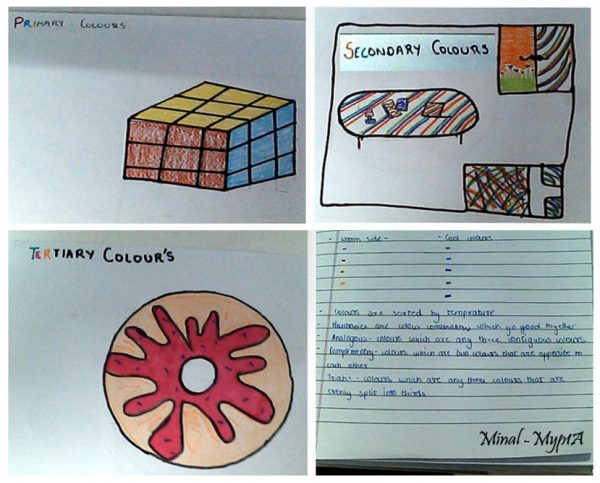 PRIMARY COLOURS
SECONDARY COLOURS
TERTIARY COLOUR'S
- Warm side - - Cool colours
- Colours are sorted by temprature
- Harmonies are colour which go good together
- Analogous - colours which are any three contiguous colours
- colours which are two colours that are opposite to
each other
- colours which are any three colours that are
evenly split into thirds
Minal - Myp1A